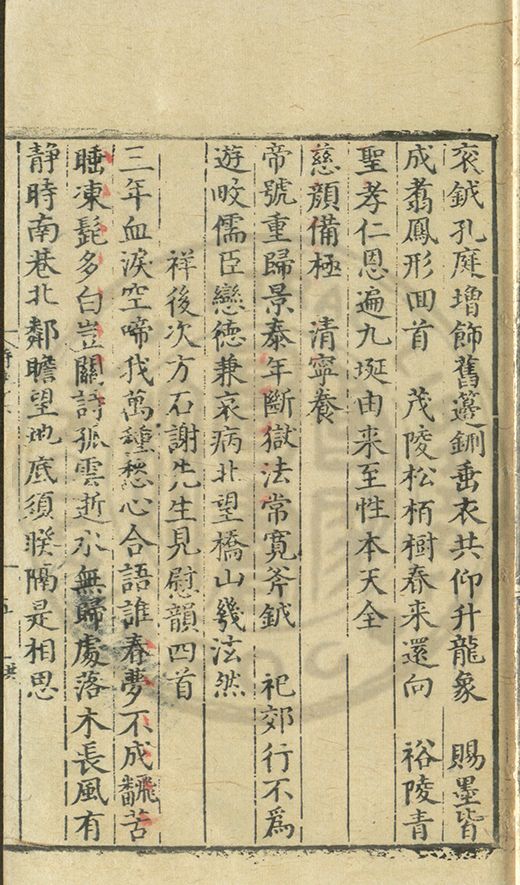 衮鉞孔庭增飾舊籩鉶垂衣共仰升龍象　賜墨皆
成翥鳳形囬首　茂陵松栢樹春来還向　裕陵青
聖孝仁恩遍九埏由来至性本天全
慈顔備極　清寧養
帝號重歸景泰年斷獄法常寛斧鉞　祀郊行不爲
遊畋儒臣戀德兼哀病北望橋山幾泫然
祥後次方石謝先生見慰韻四首
三年血淚空啼我萬種愁心合語誰春夢不成飜苦
睡凍髭多白豈關詩孤雲逝水無歸處落木長風有
静時南巷北鄰瞻望地底須暌隔是相思